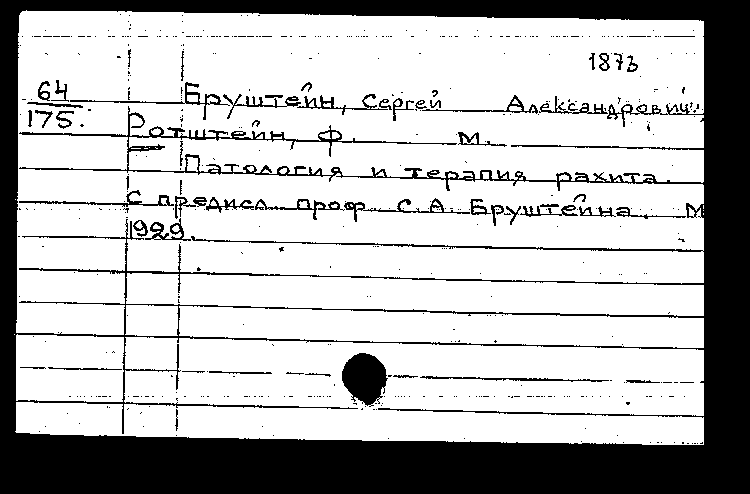 1873
64
175.
Бруштейн, Сергей Александрович,
Ротштейн, Ф. М.
Патология и терапия рахита.
С предисл. проф. С. А. Бруштейна. М
1929.